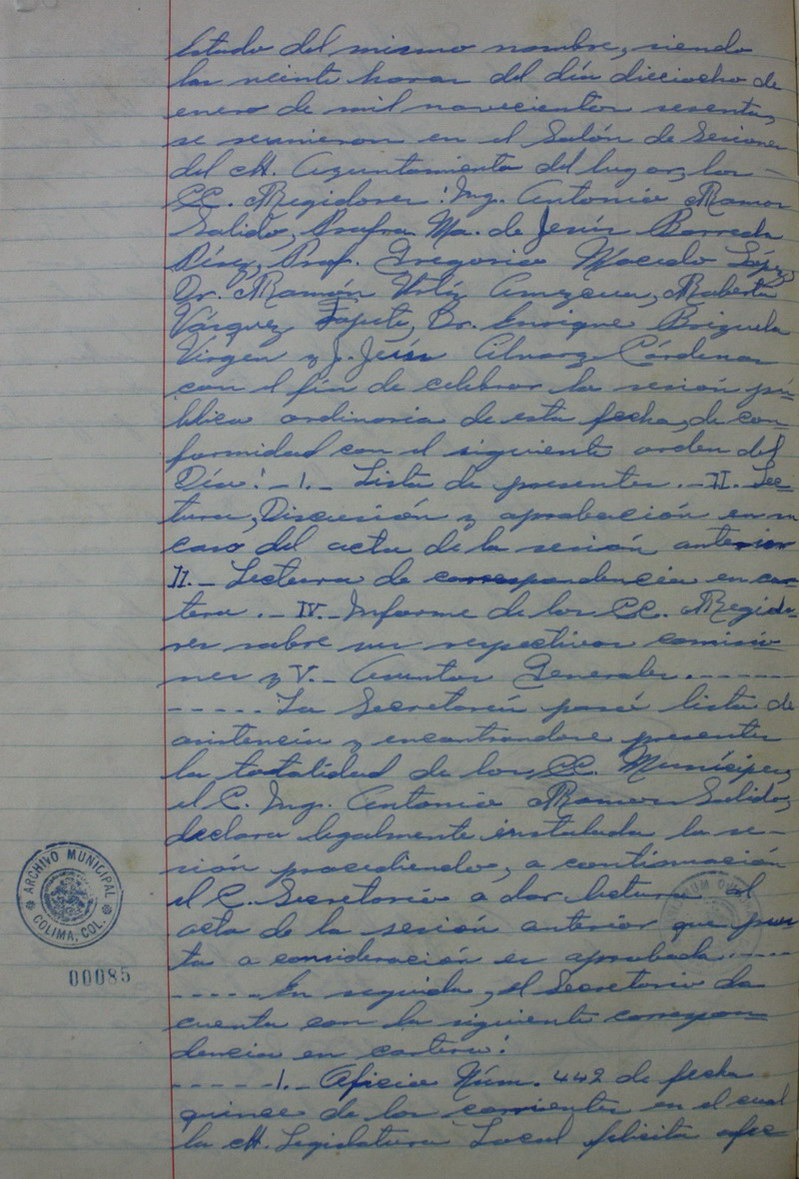 Estado del mismo nombre, siendo
las veinte horas del día dieciocho de
enero de mil novecientos sesenta,
se reunieron en el Salón de Sesiones
del H. Ayuntamiento del lugar, los -
CC. Regidores: Ing. Antonio Ramos
Salido, Profra. Ma. de Jesús Barreda
Pérez, Prof. Gregorio Macedo López,
Dr. Ramón Amezcua, Roberto
Vázquez, Dr. Enrique Brizuela
Virgen y J. Jesús Alvarez Cárdenas
con el fin de celebrar la sesión pú-
blica ordinaria de esta fecha, de con-
formidad con el siguiente orden del
Día: - I.- Lista de presentes.- II. Lec-
tura, Discusión y aprobación en su
caso del acta de la sesión anterior
II.- Lectura de correspondencia en car-
tera.- IV.- Informe de los CC. Regido-
res sobre sus respectivas comisio-
nes y V.- Asuntos Generales.------
----- La Secretaría pasó lista de
asistencia y encontrandose presentes
la totalidad de los CC. Munícipes,
el C. Ing. Antonio Ramos Salido,
declara legalmente instalada la se-
sión procediendo, a continuación
el C. Secretario a dar lectura al
acta de la sesión anterior que pues
ta a consideración es aprobada.----
----- En seguida, el Secretario da
cuenta con la siguiente correspon-
dencia en cartera:
----- 1.- Oficio Núm. 442 de fecha
quince de los corrientes en el cual
la H. Legislatura Local felicita
ARCHIVO MUNICIPAL
COLIMA, COL.
00085